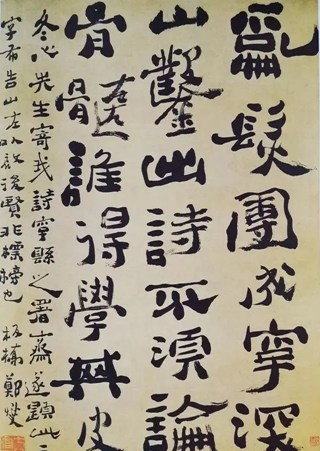 亂髮團成字深
山鑿出詩不須論
骨髓誰得學其皮
冬心先生寄我詩字縣之署齋遂題此二
字布告山左以後賢非標榜也 板橋鄭燮